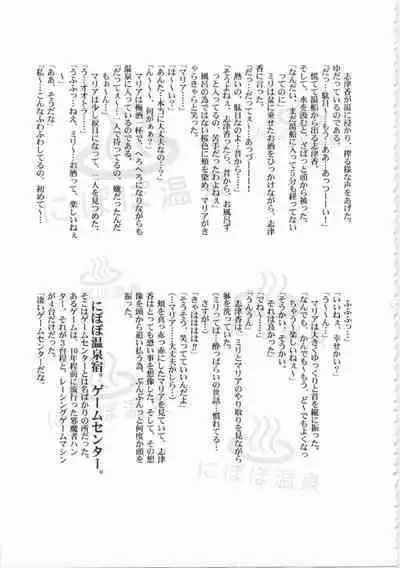 志津香が湯に浸かり、搾る様な声をあげた。
ゆだっているのである。
「だって…駄目…！もう…ああ…あっつーーい！」
慌てて湯船から出る志津香。
そして、水を汲むと、ざばっと頭から被った。
「なんだい、まだ湯船に入って5分も経ってない
ってのに」
ミリは盆に乗せたお酒をひっかけながら、志津
香に言った。
「だ…だってぇ…あっづー！」
熱いの、駄目なのよ…昔から…」
「そうよねぇ、志津香ったら、昔から、お風呂ず
っと入ってるの、苦手だったわよねぇ」
風呂の為ではない桜色に頬を染め、マリアがき
ゃらきゃらと笑った。
「マリア…」
「は～～い？」
「あんた…本当に大丈夫なの…？」
「ん～～～、何がぁぁ？」
マリアは梅酒一杯で、ヘベれけになりながらも
温泉に入っているのである。
「だってぇ～～～、一人で待ってるの、嫌だったんだ
もぉ～ん」
マリアは少し涙目になって、二人を見つめた。
「う…オ…オーケー…」
「うふふっ…ねえ、ミリ～～お酒って、楽しいねぇ
～」
「ああ、そうだな」
「私…こんなふわふわしてるの、初めて～」
ふふふっ…」
「いいねぇ、幸せかい？」
「う～～ん」
マリアは大きくゆっくりと首を縦に振った。
「なんでも、かんでも～～もう、ど～でもよくなっ
ちゃう～～楽しいねぇ～～」
「そうかい、そうかい。
それは良かった」
「でね～～～」
「うんうん」
志津香は、ミリとマリアのやり取りを見ながら
躰を洗っていた。
（さすが…
ミリってば…酔っぱらいの世話…慣れてる…）
「きゃははははは!!」
「そうそう、笑ってていいんだよ」
（…マリア……大丈夫かしら…）
頬を真っ赤っ赤にしたマリアを見ていて、志津
香はとっても恐い事を想像した。そして、その想
像を頭から追い払う為、ぶんぶんっと何度か頭を
振った。
にぽぽ温泉宿。ゲームセンター。
そこはゲームセンターとは名ばかりの所だった。
あるゲームは、10年程前に流行った邪魔者ハン
ター。それが3台程と、レーシングゲームマシン
が4台だけだった。
「凄いゲームセンターだな。
にぽぽ温泉
にぽぽ温泉